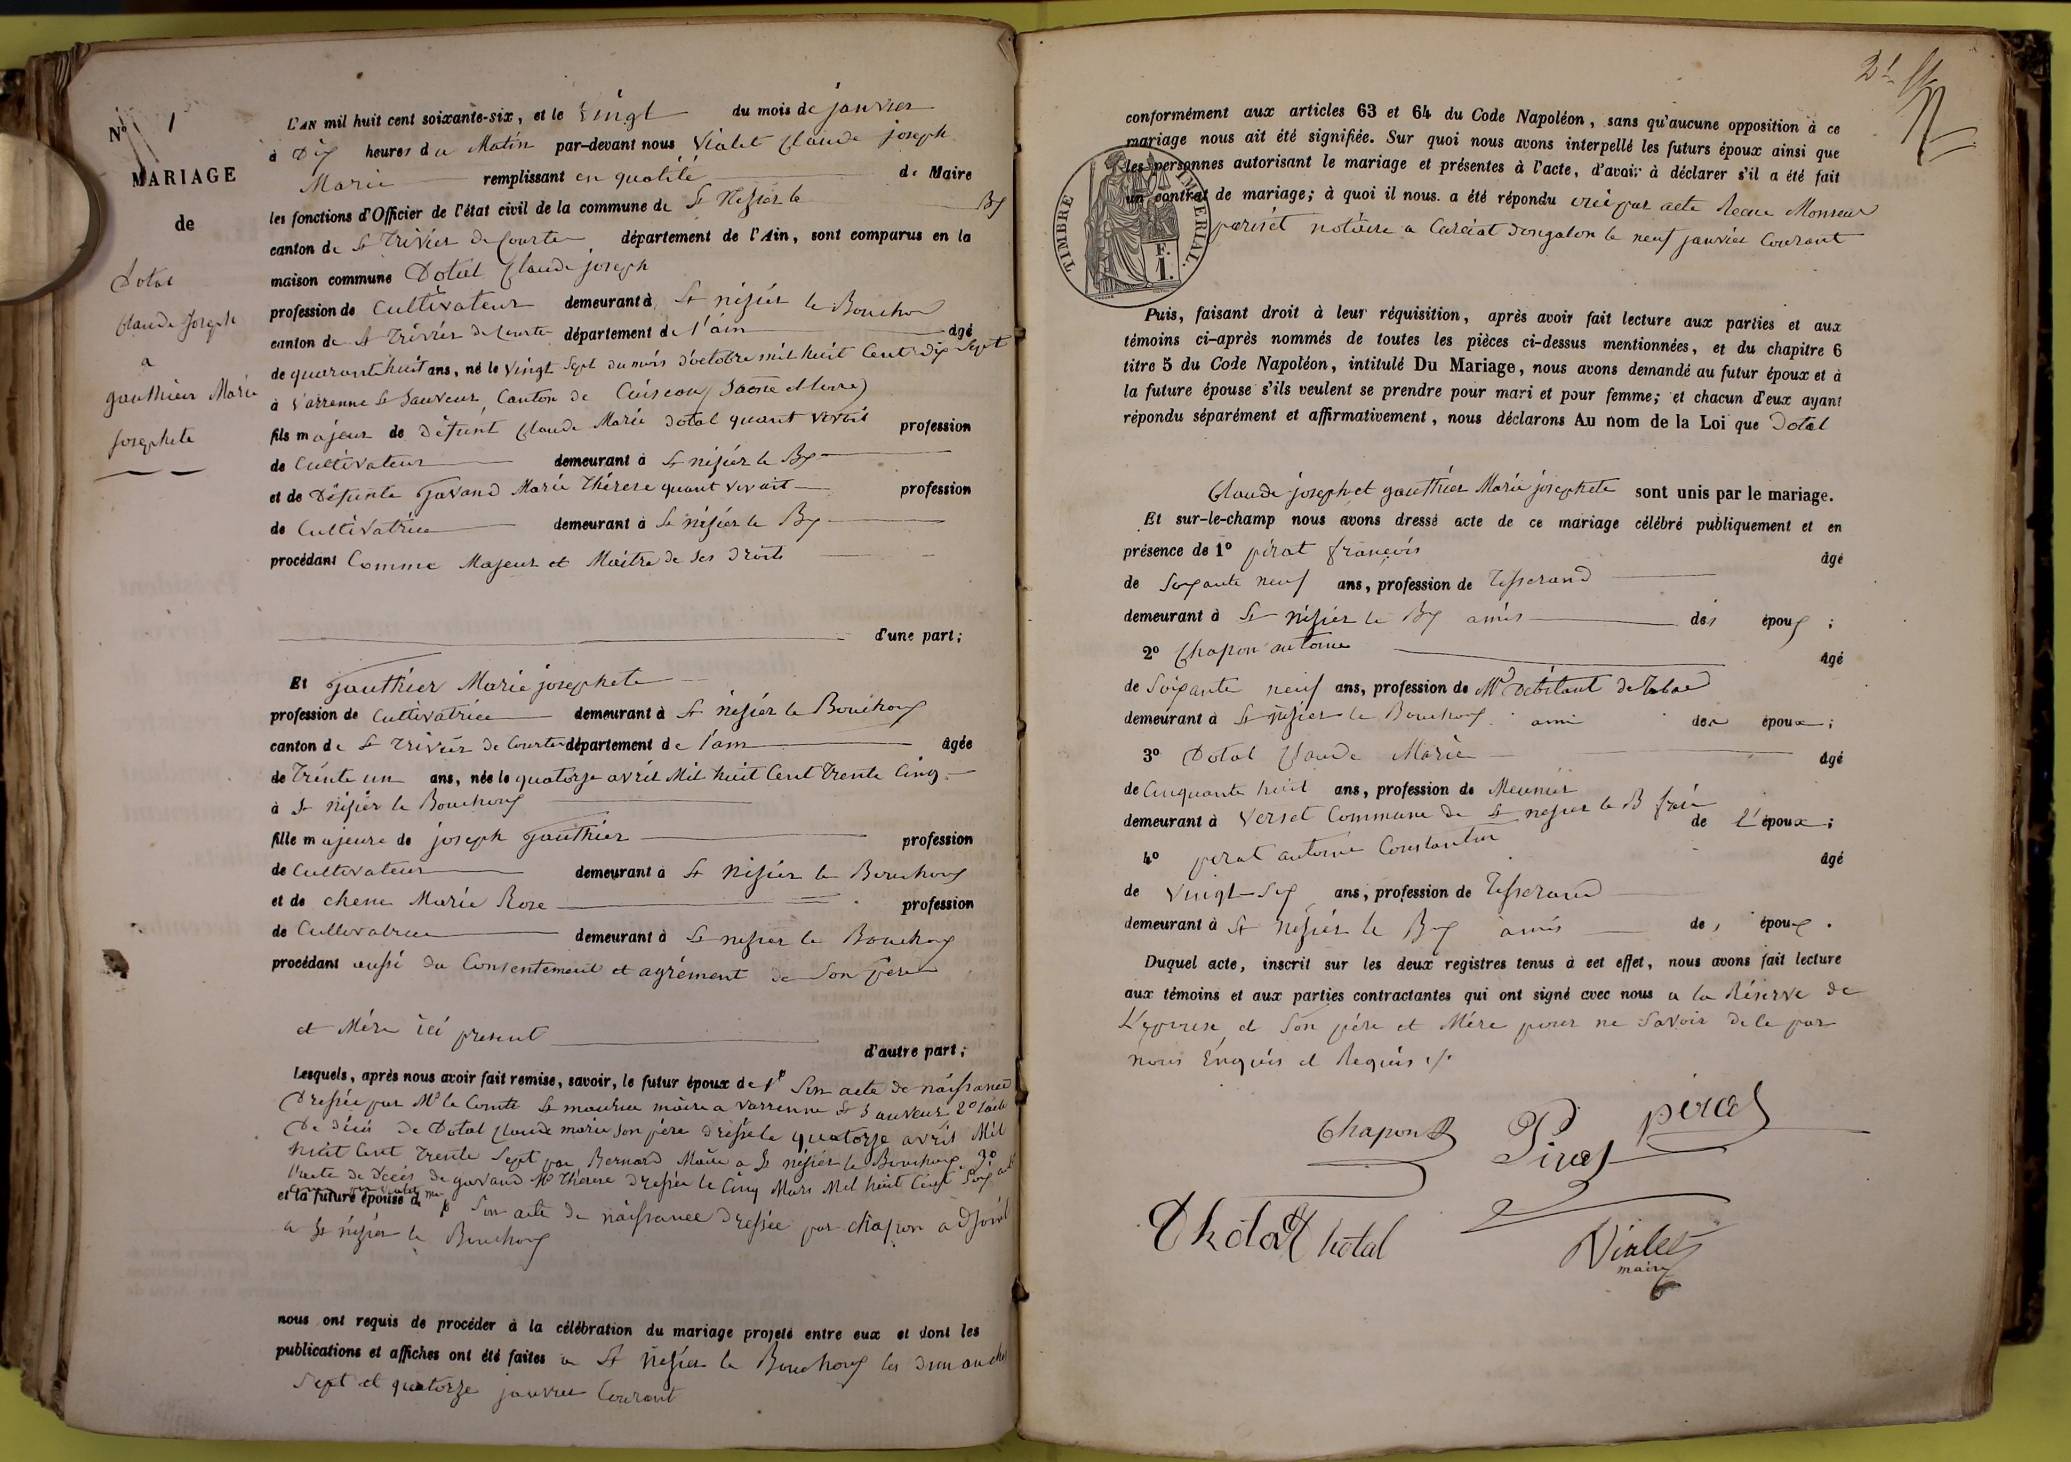 N° 1
MARIAGE
de
Dotal
Claude Joseph
a
gauthier Marie
Josephete
L'AN mil huit cent soixante-six, et le vingt du mois de janvier
à Dix heures du Matin par-devant nous Vialet Claude joseph
Marie remplissant en qualité de Maire
les fonctions d'Officier de l'état civil de la commune de St Nisier le By
canton de St Trivier de Courte, département de l'Ain, sont comparus en la
maison commune Dotal Claude joseph
profession de Cultivateur demeurant à St nisier le Bouchoux
canton de St Trivier de Courte département de l'ain âgé
de quarant huit ans, né le vingt sept du mois d'octobre mil huit Cent dix Sept
à Varrenne St Sauveur, Canton de Cuiseaux Saone et Loire
fils majeur de défunt Claude Marie dotal quant vivait profession
de Cultivateur demeurant à St nisier le By
et de Défunte Gavand Marie Thérese quant vivait profession
de Cultivatrice demeurant à St nisier le By
procédant Comme Majeur et Maitre de ses droits
d'une part;
Et Gauthier Marie josephete
profession de Cultivatrice demeurant à St nisier le Bouchoux
canton de St Trivier de Courte département de l'ain âgée
de Trente un ans, née le quatorze avril Mil huit Cent Trente Cinq
à St nisier le Bouchoux
fille majeure de joseph Gauthier profession
de Cultivateur demeurant à St Nisier le Bouchoux
et de chene Marie Rose profession
de Cultivatrice demeurant à St nisier le Bouchoux
procédant aussi du Consentement et agrément de Son père
et Mére ici présent d'autre part;
Lesquels, après nous avoir fait remise, savoir, le futur époux de 1° Son acte de naissance
Dressée par Mr le Comte St maurice maire a varrenne St Sauveur 2° l'acte
De décès de Dotal Claude marie son père dressé le quatorze avril Mil
huit Cent Trente Sept par Bernard Maire a St nisier le Bouchoux 3°
l'acte de Décès de gavand Me Thérese dressée le Cinq Mars Mil huit Cent
et la future épouse de 1° Son acte de naissance dressée par chapon adjoint
a St nisier le Bouchoux
nous ont requis de procéder à la célébration du mariage projeté entre eux et dont les
publications et affiches ont été faites a St nisier le Bouchoux les dimanche
Sept et quatorze janvier Courant
conformément aux articles 63 et 64 du Code Napoléon, sans qu'aucune opposition à ce
mariage nous ait été signifiée. Sur quoi nous avons interpellé les futurs époux ainsi que
les personnes autorisant le mariage et présentes à l'acte, d'avoir à déclarer s'il a été fait
un contrat de mariage; à quoi il nous a été répondu oui par acte Recue Monsieur
pariset notaire a Curciat dongalon le neuf janvier Courant
TIMBRE IMPERIAL
F.
1.
Puis, faisant droit à leur réquisition, après avoir fait lecture aux parties et aux
témoins ci-après nommés de toutes les pièces ci-dessus mentionnées, et du chapitre 6
titre 5 du Code Napoléon, intitulé Du Mariage, nous avons demandé au futur époux et à
la future épouse s'ils veulent se prendre pour mari et pour femme; et chacun d'eux ayant
répondu séparément et affirmativement, nous déclarons Au nom de la Loi que Dotal
Claude joseph et gauthier Marie josephete sont unis par le mariage.
Et sur-le-champ nous avons dressé acte de ce mariage célébré publiquement et en
présence de 1° pirat françois âgé
de Soixante neuf ans, profession de Tisserand
demeurant à St nisier le By amis des époux;
2° Chapon antoine âgé
de Soixante neuf ans, profession de Md débitant de Tabac
demeurant à St nisier le Bouchoux ami des époux;
3° Dotal Claude Marie âgé
de Cinquante huit ans, profession de Meunier
demeurant à Verset Commune de St nisier le B frére de L'époux;
4° pirat antoine Constantin âgé
de vingt-six ans, profession de Tisserand
demeurant à St nisier le By amis des époux.
Duquel acte, inscrit sur les deux registres tenus à cet effet, nous avons fait lecture
aux témoins et aux parties contractantes qui ont signé avec nous a la Réserve de
L'epouse et Son pére et Mére pour ne Savoir de le par
nous Enquis et Requis
Chapon
Pirat
pirat
Thotal
Thotal
Vialet
maire